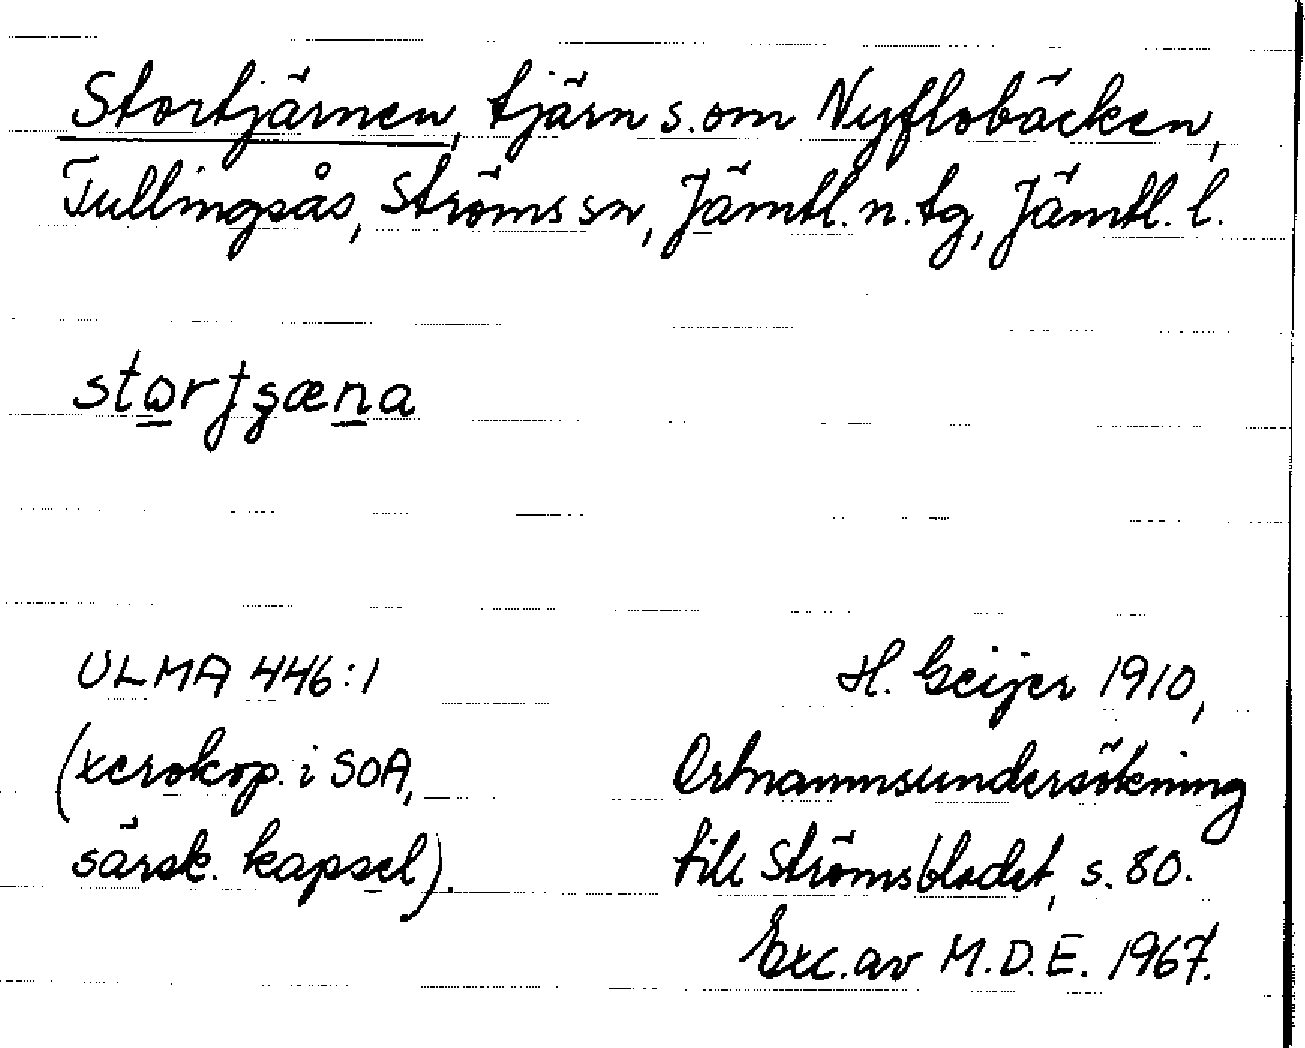 Stortjärnen, tjärn s.om Nyflobäcken,
Tullingsås, Ströms sn, Jämtl. n. tg, Jämtl. l.
ULMA 446:1
(xerokop. i SOA,
särsk. kapsel).
H. Geijer 1910,
Ortnamnsundersökning
till Strömsbladet, s. 80.
Exc. av M.D.E. 1967.